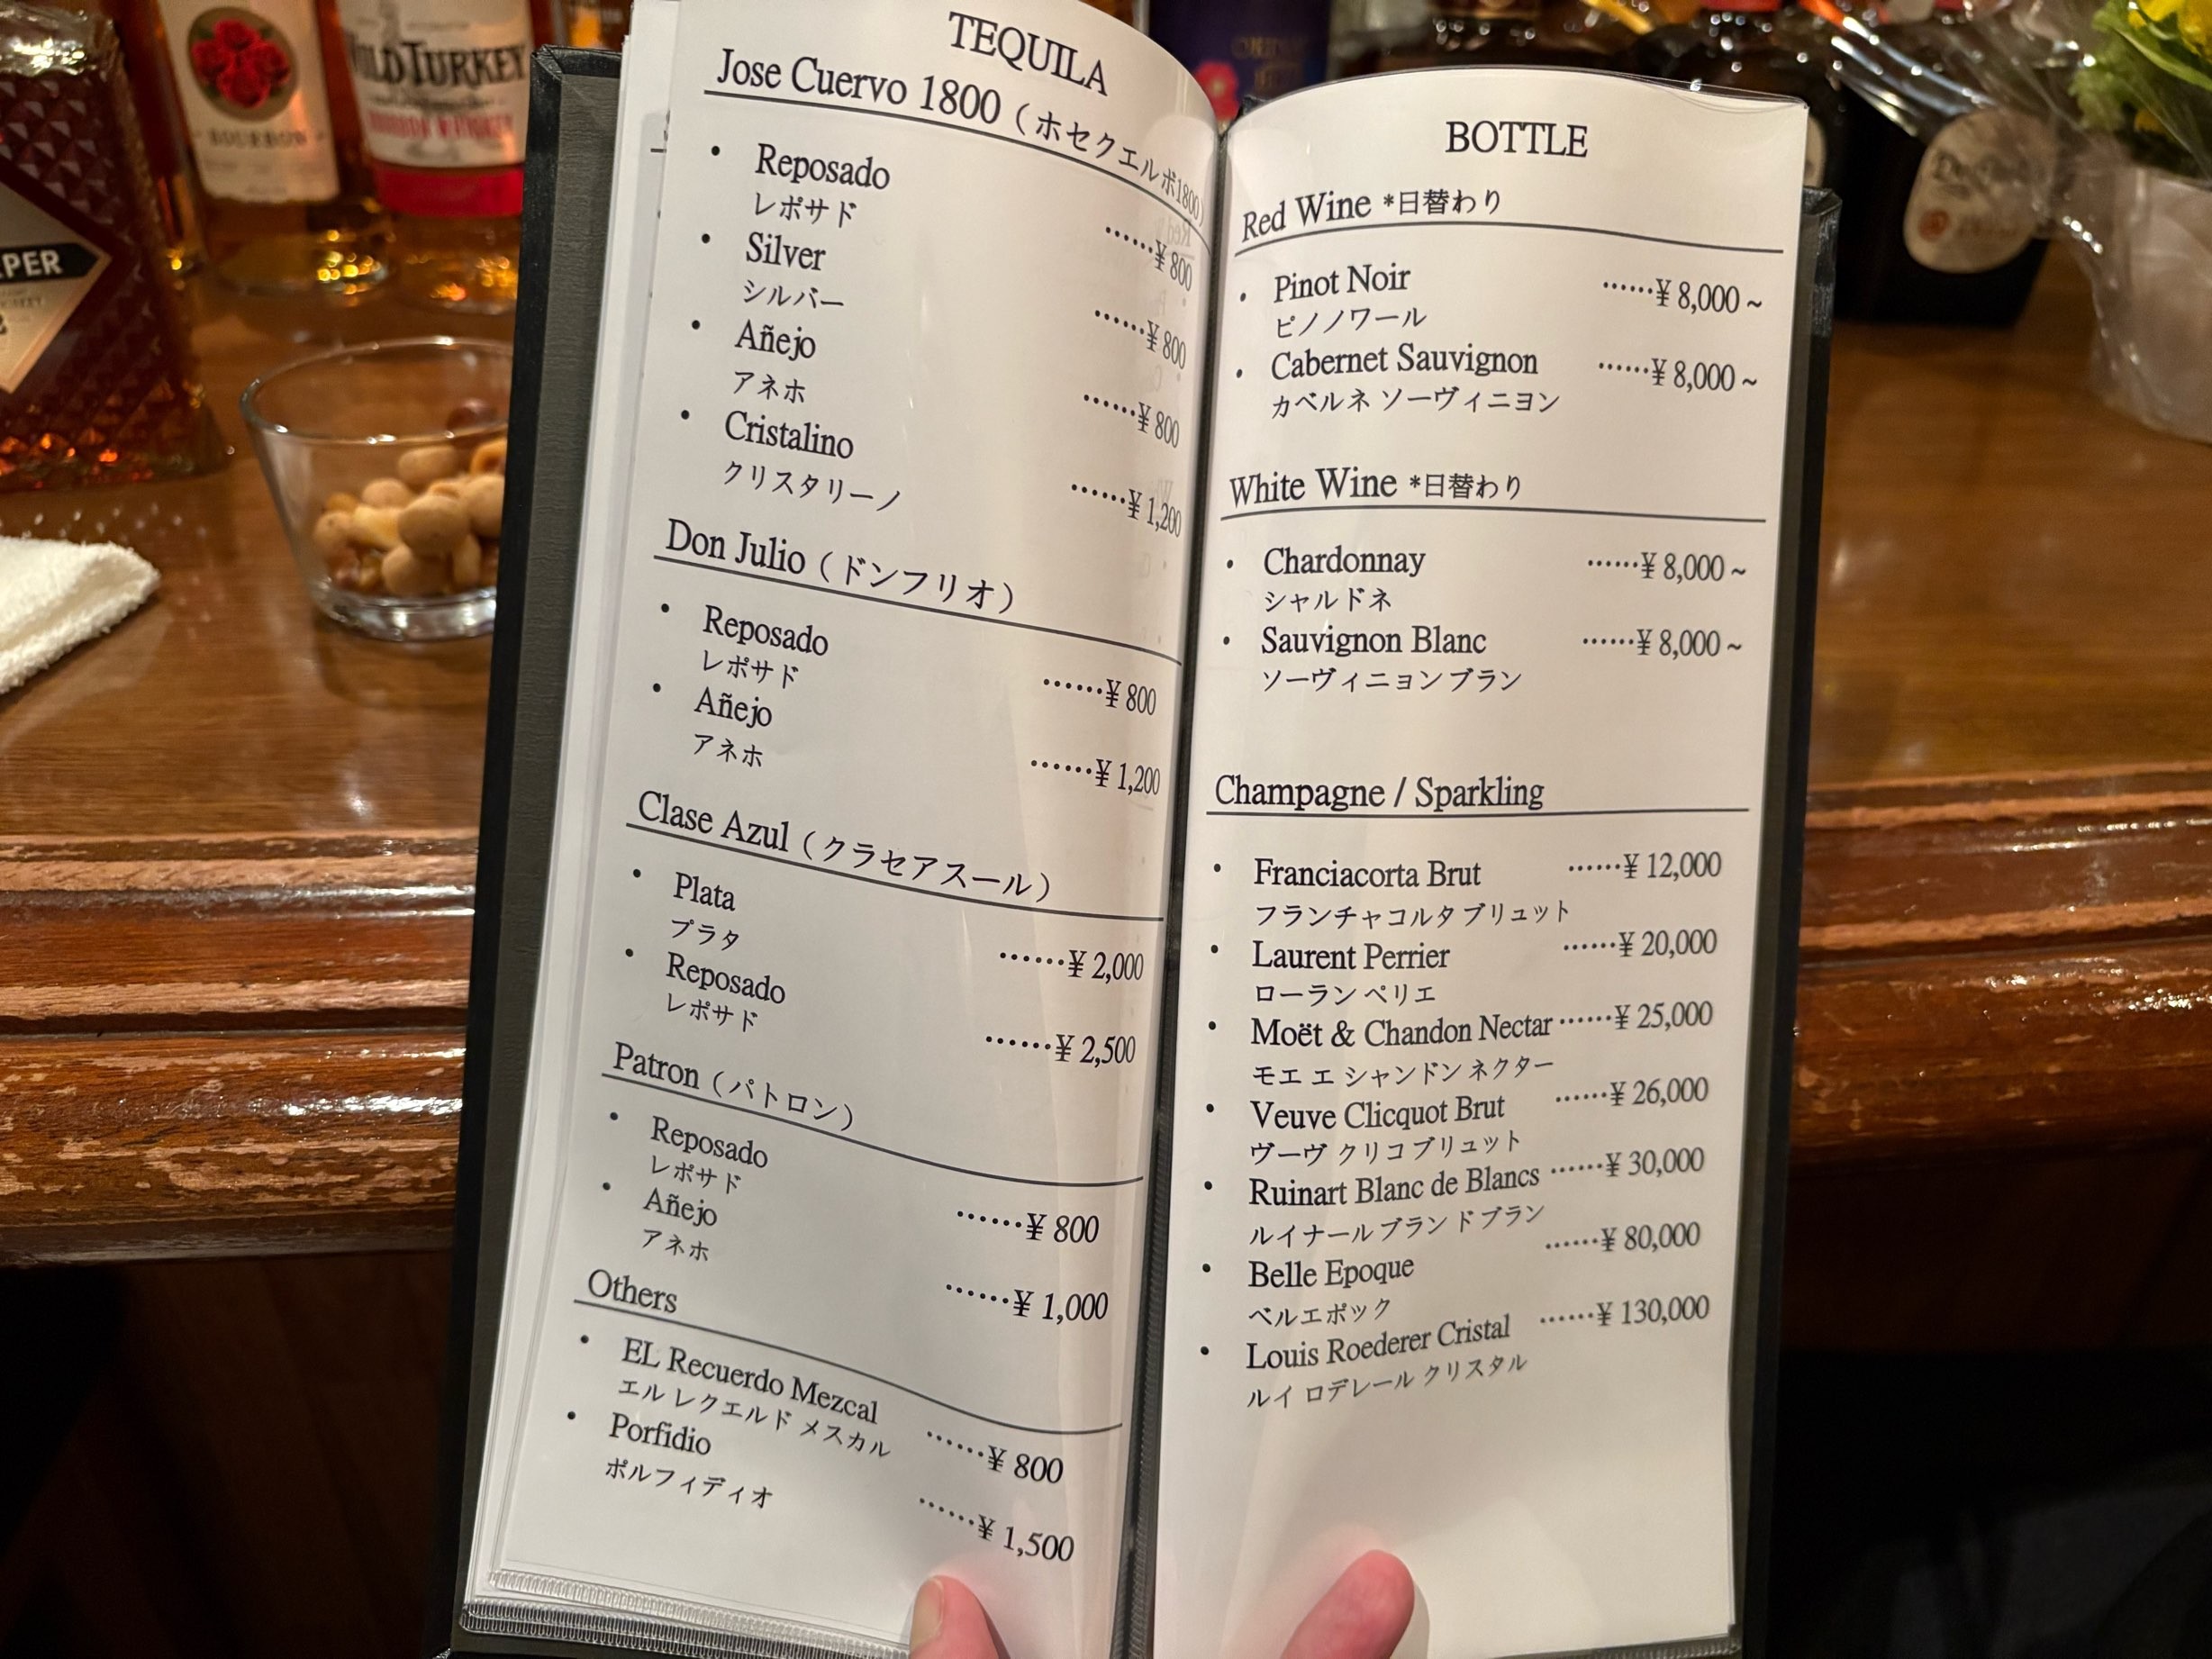 BOURBON
WILD TURKEY
BOURBON WHISKEY
PER
TEQUILA
Jose Cuervo 1800 (ホセクエルボ1800)
• Reposado ……¥ 800
レポサド
• Silver ……¥ 800
シルバー
• Añejo ……¥ 800
アネホ
• Cristalino ……¥ 1,200
クリスタリーノ
Don Julio (ドンフリオ)
• Reposado ……¥ 800
レポサド
• Añejo ……¥ 1,200
アネホ
Clase Azul (クラセアスール)
• Plata ……¥ 2,000
プラタ
• Reposado ……¥ 2,500
レポサド
Patron (パトロン)
• Reposado ……¥ 800
レポサド
• Añejo ……¥ 1,000
アネホ
Others
• EL Recuerdo Mezcal ……¥ 800
エル レクエルド メスカル
• Porfidio ……¥ 1,500
ポルフィディオ
BOTTLE
Red Wine *日替わり
• Pinot Noir ……¥ 8,000 ~
ピノノワール
• Cabernet Sauvignon ……¥ 8,000 ~
カベルネ ソーヴィニヨン
White Wine *日替わり
• Chardonnay ……¥ 8,000 ~
シャルドネ
• Sauvignon Blanc ……¥ 8,000 ~
ソーヴィニョンブラン
Champagne / Sparkling
• Franciacorta Brut ……¥ 12,000
フランチャコルタ ブリュット
• Laurent Perrier ……¥ 20,000
ローラン ペリエ
• Moët & Chandon Nectar ……¥ 25,000
モエ エ シャンドン ネクター
• Veuve Clicquot Brut ……¥ 26,000
ヴーヴ クリコ ブリュット
• Ruinart Blanc de Blancs ……¥ 30,000
ルイナール ブラン ド ブラン
• Belle Epoque ……¥ 80,000
ベルエポック
• Louis Roederer Cristal ……¥ 130,000
ルイ ロデレール クリスタル